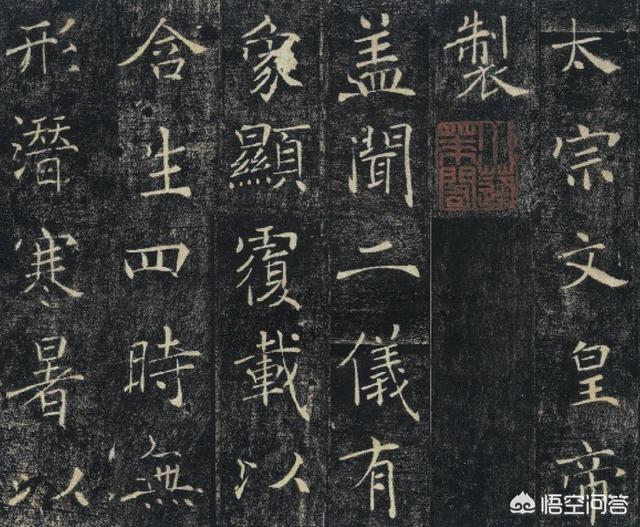 太宗文皇帝
製
盖聞二儀有
象顯覆載以
含生四時無
形潛寒暑以
悟空问答